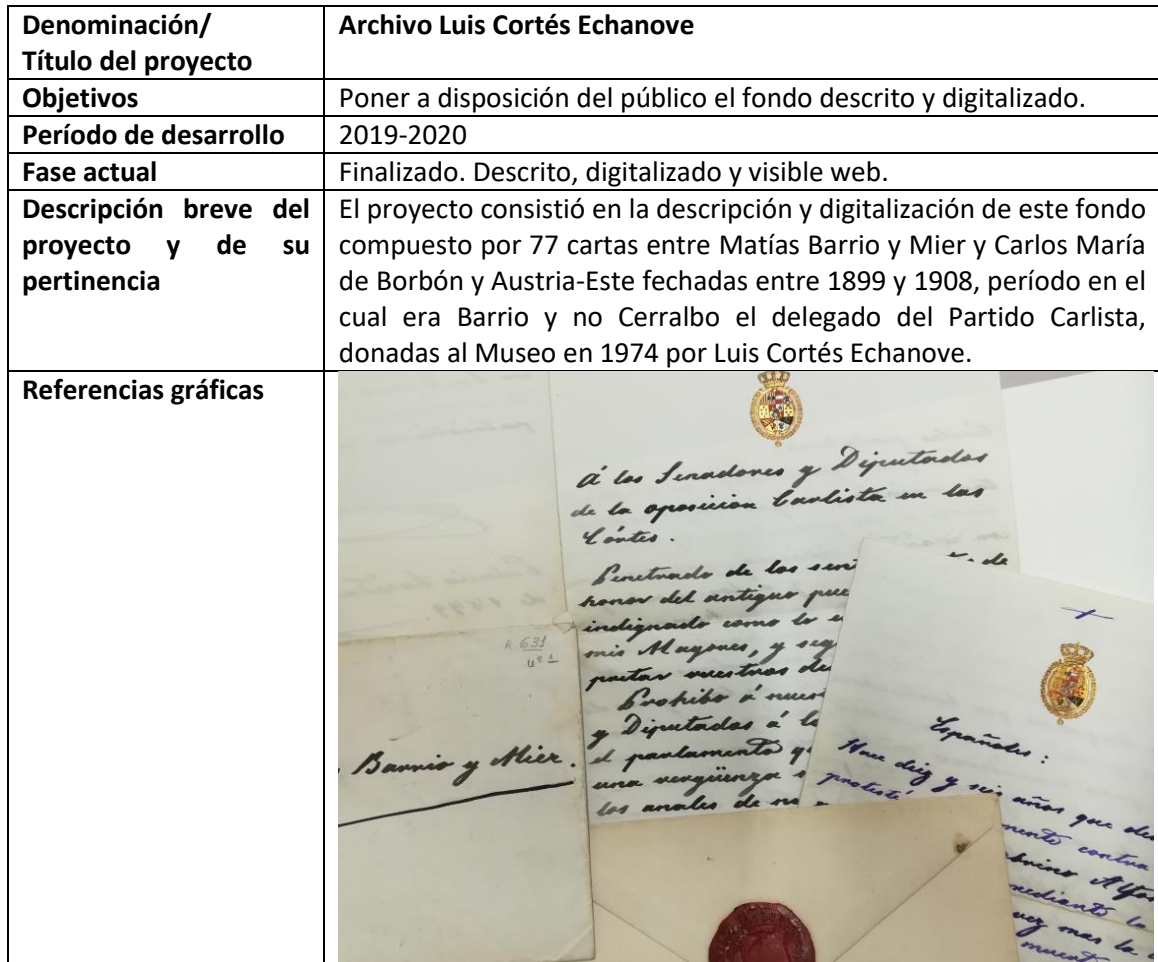 Denominación/
Título del proyecto
Archivo Luis Cortés Echanove
Objetivos
Poner a disposición del público el fondo descrito y digitalizado.
Período de desarrollo
2019-2020
Fase actual
Finalizado. Descrito, digitalizado y visible web.
Descripción breve del
proyecto y de su
pertinencia
El proyecto consistió en la descripción y digitalización de este fondo
compuesto por 77 cartas entre Matías Barrio y Mier y Carlos María
de Borbón y Austria-Este fechadas entre 1899 y 1908, período en el
cual era Barrio y no Cerralbo el delegado del Partido Carlista,
donadas al Museo en 1974 por Luis Cortés Echanove.
Referencias gráficas
Á los Senadores y Diputados
de la oposicion Carlista en las
Córtes.
Penetrado de los de
honor del antiguo
indignado como lo
mis Mayores, y
nuestros
Prohibo á
y Diputados á
el parlamento
una vergüenza
los anales de
R. 631
nº 1
Barrio y Mier.
de 1899.
Españoles:
Hace diez y seis años que
protesté contra
mediante la
vez mas la